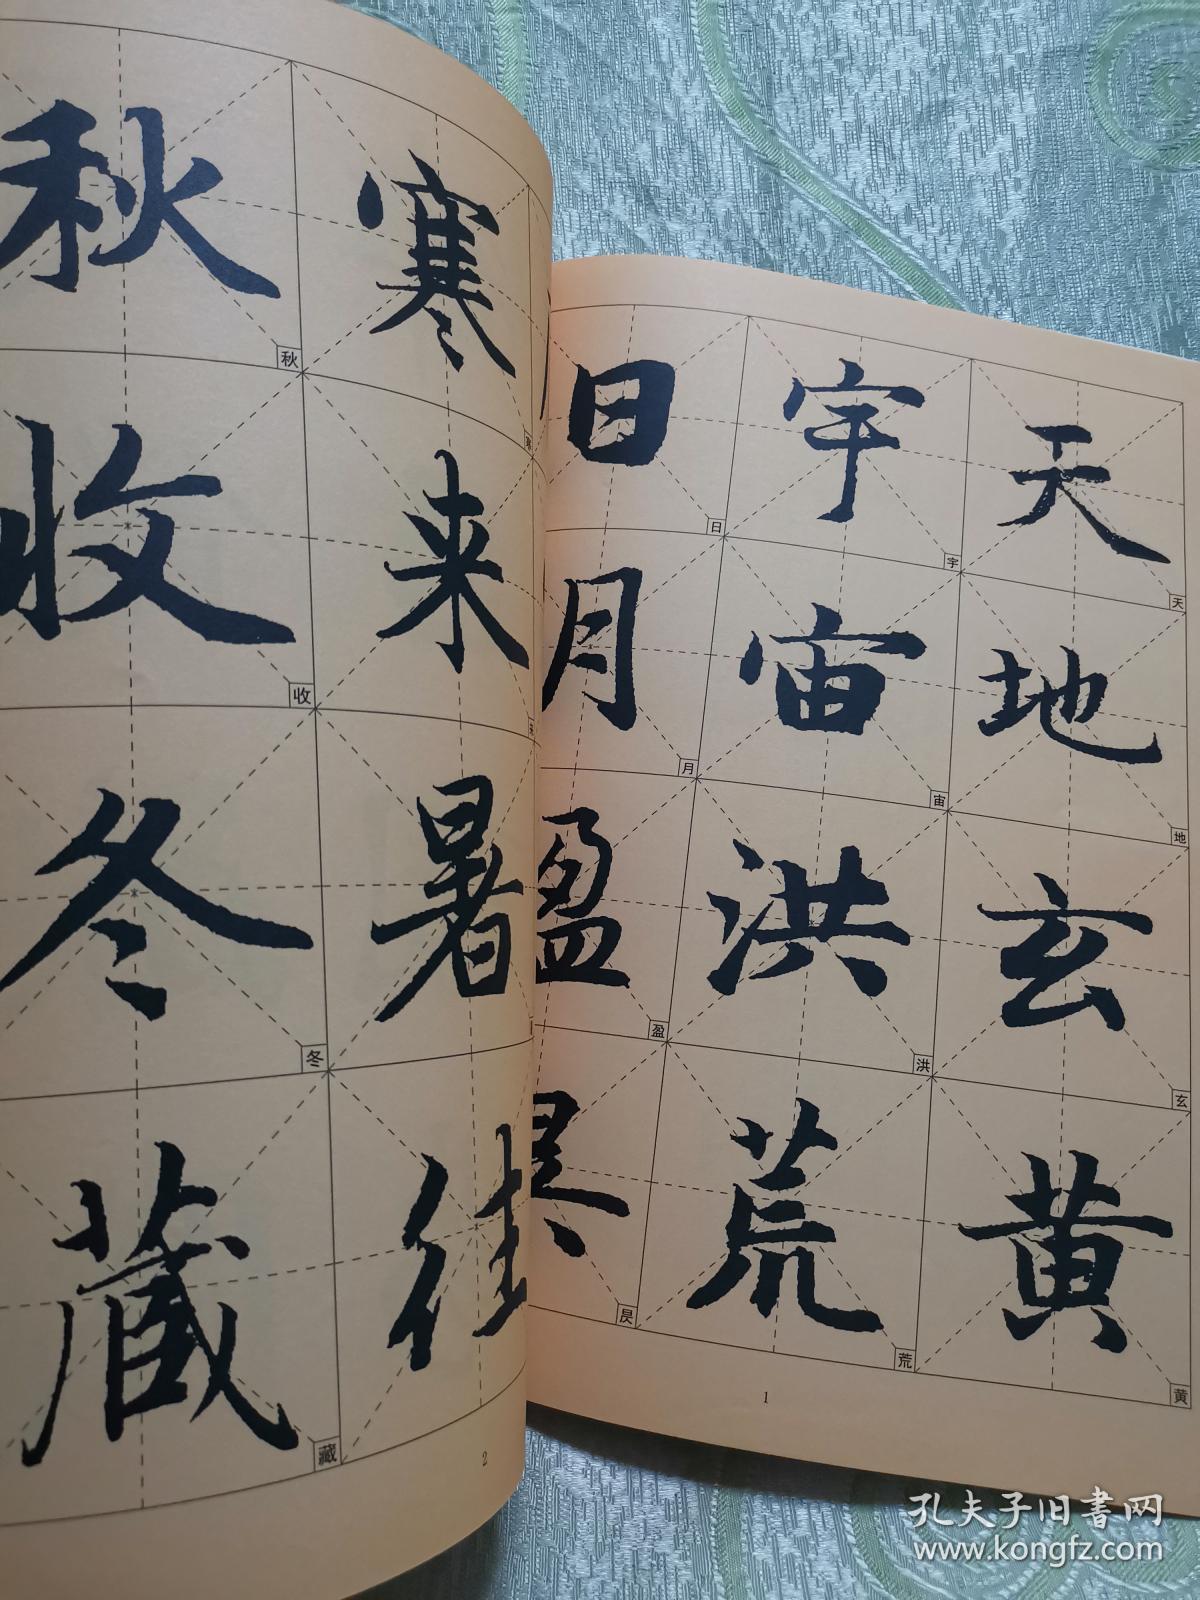 天地玄黄
宇宙洪荒
日月盈昃
1
寒来暑往
秋收冬藏
2
天
地
玄
黄
宇
宙
洪
荒
日
月
盈
昃
秋
收
冬
藏
孔夫子旧书网
www.kongfz.com